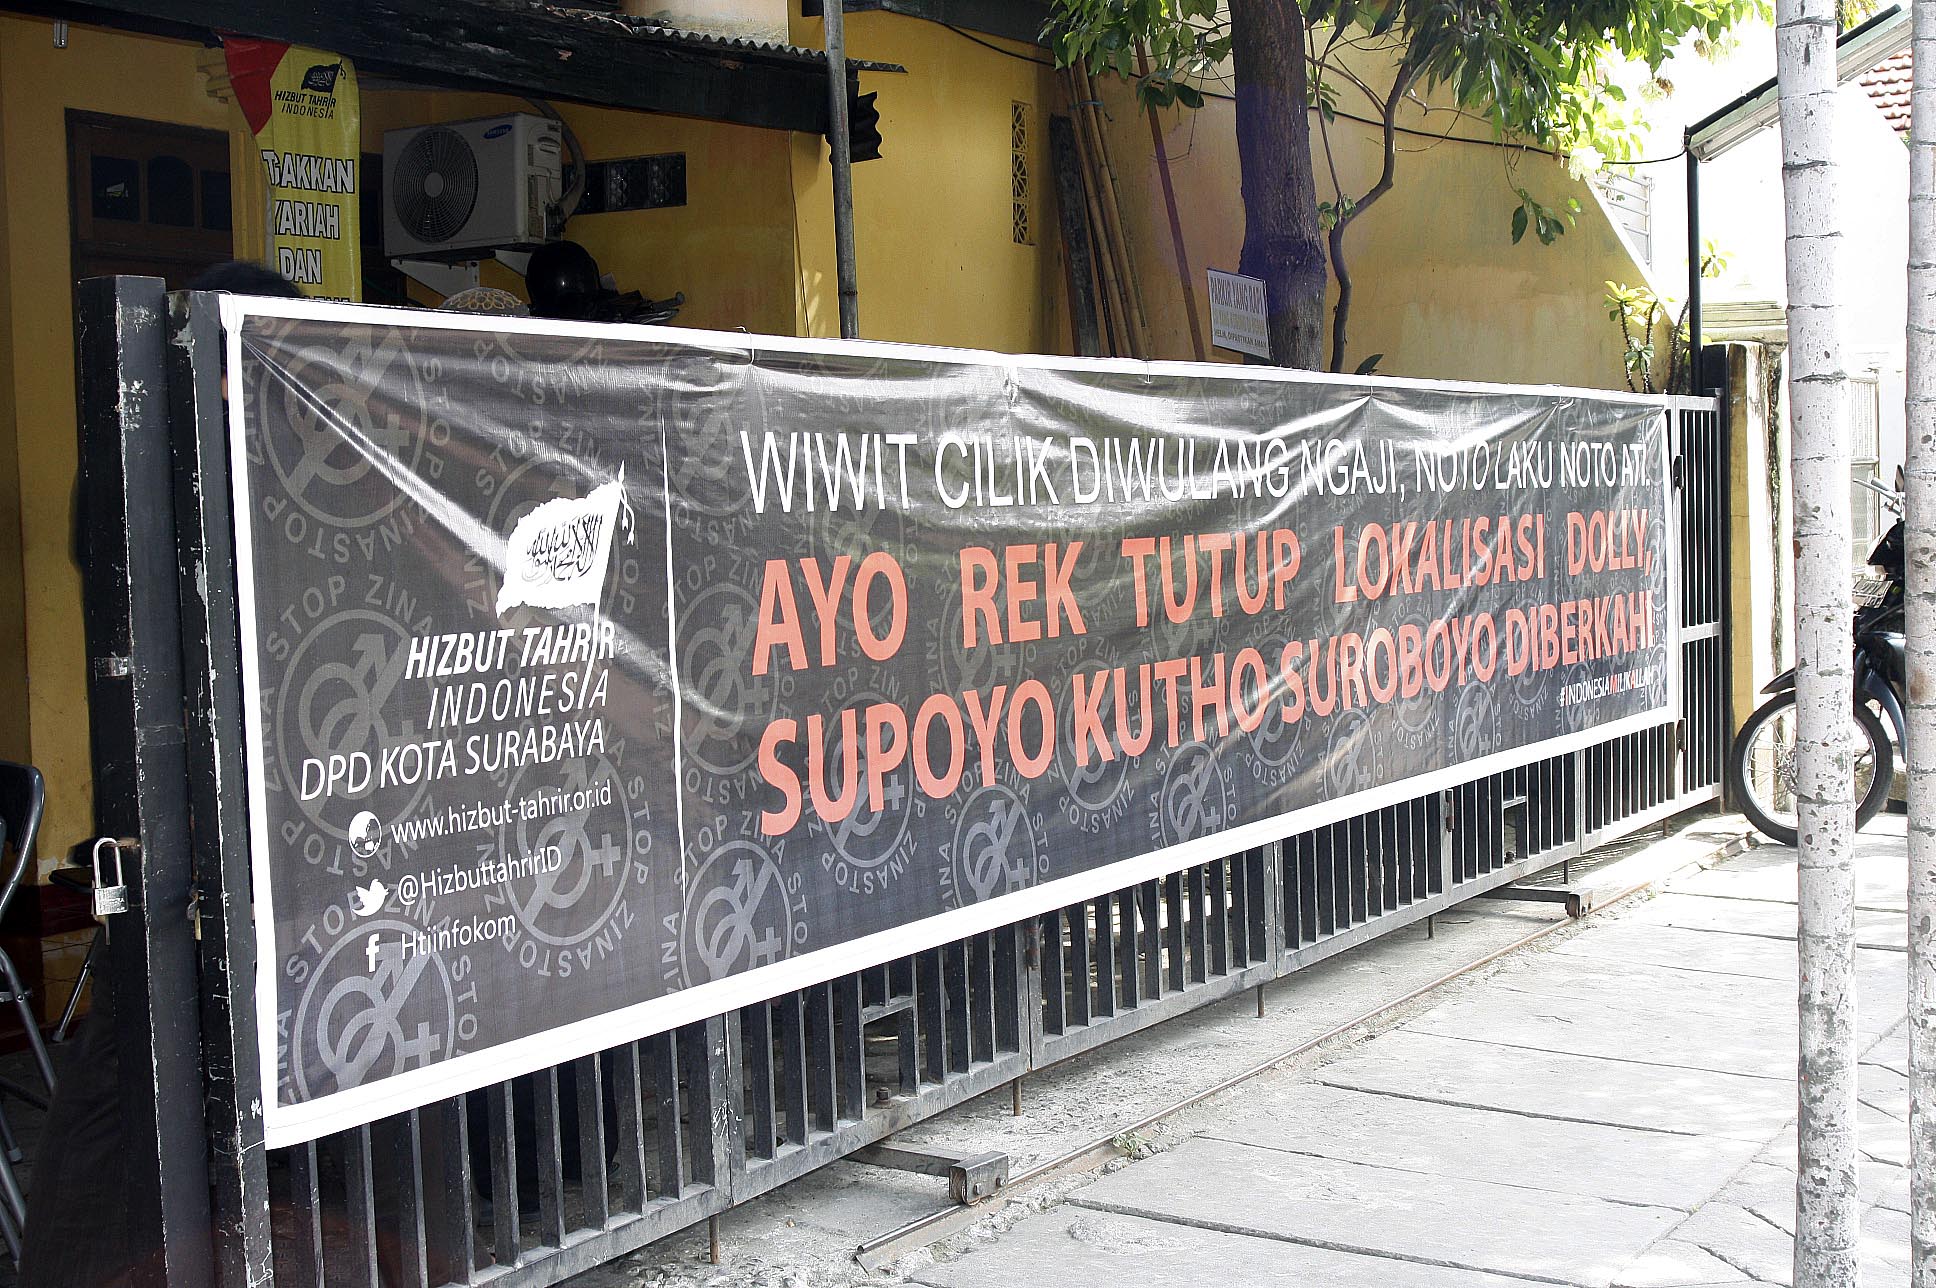 HIZBUT TAHRIR
INDONESIA
TEGAKKAN
SYARIAH
DAN
SAMSUNG
PARKIR YANG RAPI
WIWIT CILIK DIWULANG NGAJI, NOTO LAKU NOTO ATI.
AYO REK TUTUP LOKALISASI DOLLY,
SUPOYO KUTHO SUROBOYO DIBERKAHI
#INDONESIAMILIKALLAH
HIZBUT TAHRIR
INDONESIA
DPD KOTA SURABAYA
www.hizbut-tahrir.or.id
@HizbuttahrirID
Htiinfokom
STOP ZINA STOP ZINA